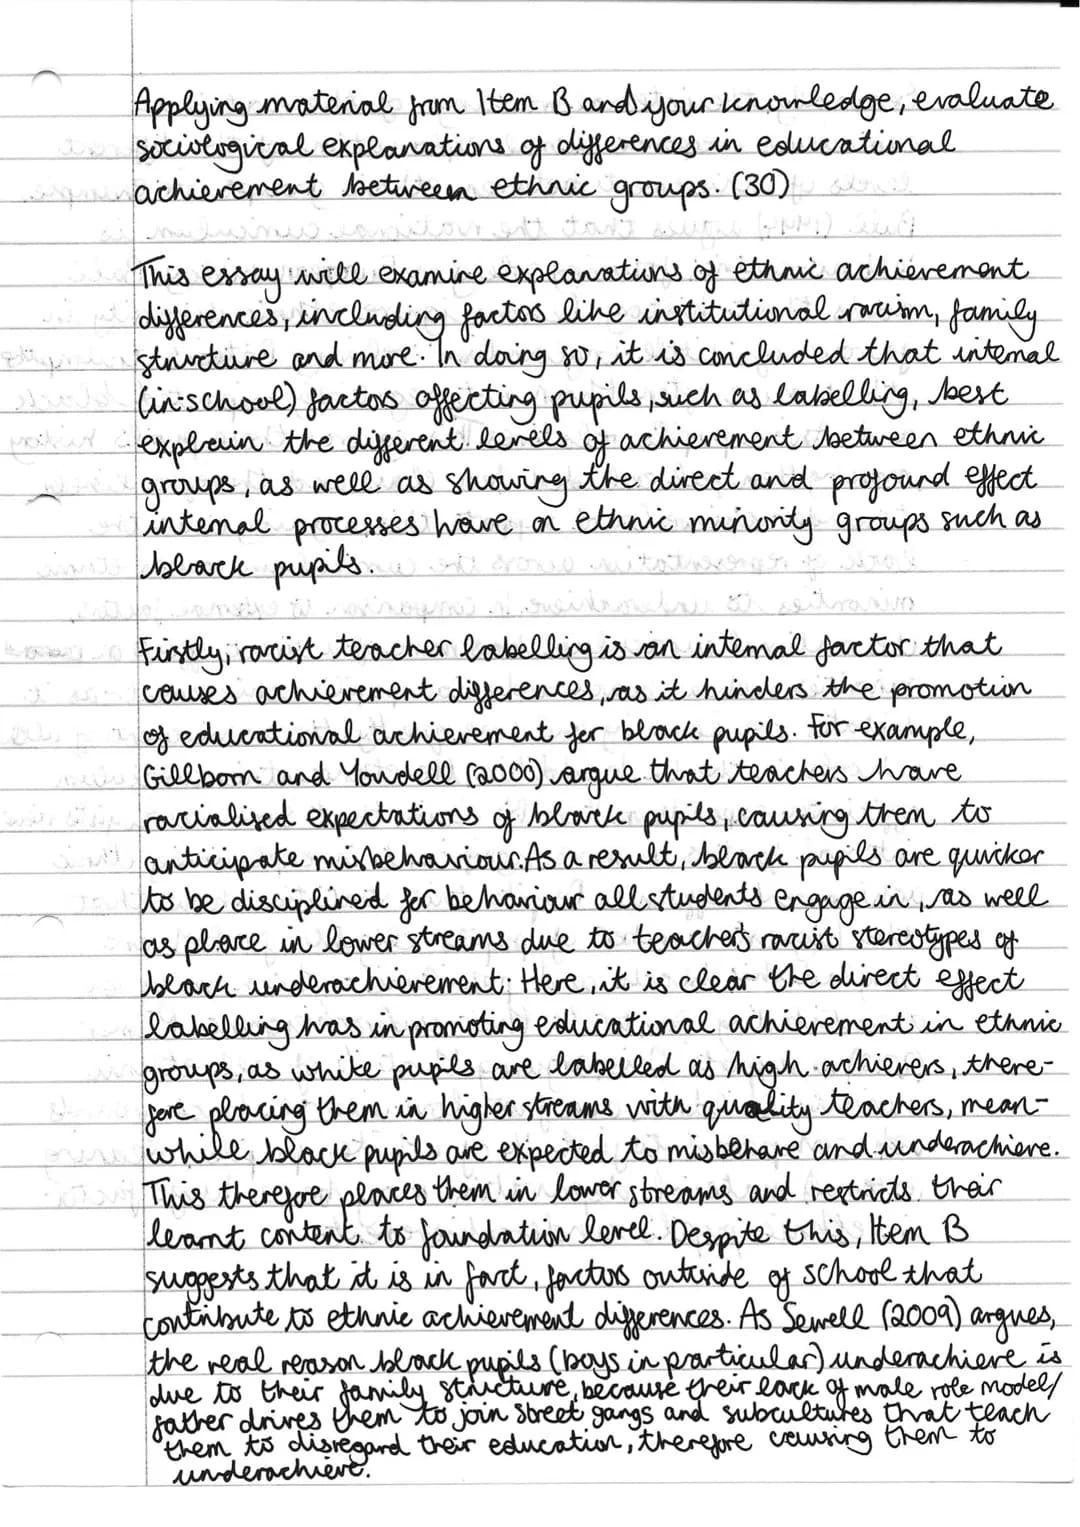 Applying material from Item B and your knowledge, evaluate
sociological explanations of differences in educational
achievement between ethnic groups. (30)
This essay will examine explanations of ethnic achievement
differences, including factors like institutional racism, family
structure and more. In doing so, it is concluded that internal
(in-school) factors affecting pupils, such as labelling, best
explain the different levels of achievement between ethnic
groups, as well as showing the direct and profound effect
internal processes have on ethnic minority groups such as
black pupils.
Firstly, racist teacher labelling is an internal factor that
causes achievement differences, as it hinders the promotion
of educational achievement for black pupils. For example,
Gillborn and Youdell (2000) argue that teachers have
racialised expectations of black pupils, causing them to
anticipate misbehaviour. As a result, black pupils are quicker
to be disciplined for behaviour all students engage in, as well
as place in lower streams due to teacher's racist stereotypes of
black underachievement. Here, it is clear the direct effect
labelling has in promoting educational achievement in ethnic
groups, as white pupils are labelled as high achievers, there-
fore placing them in higher streams with quality teachers, mean-
while black pupils are expected to misbehave and underachieve.
This therefore places them in lower streams and restricts their
learnt content to foundation level. Despite this, Item B
suggests that it is in fact, factors outside of school that
contribute to ethnic achievement differences. As Sewell (2009) argues,
the real reason black pupils (boys in particular) underachieve is
due to their family structure, because their lack of male role model/
father drives them to join street gangs and subcultures that teach
them to disregard their education, therefore causing them to
underachieve.